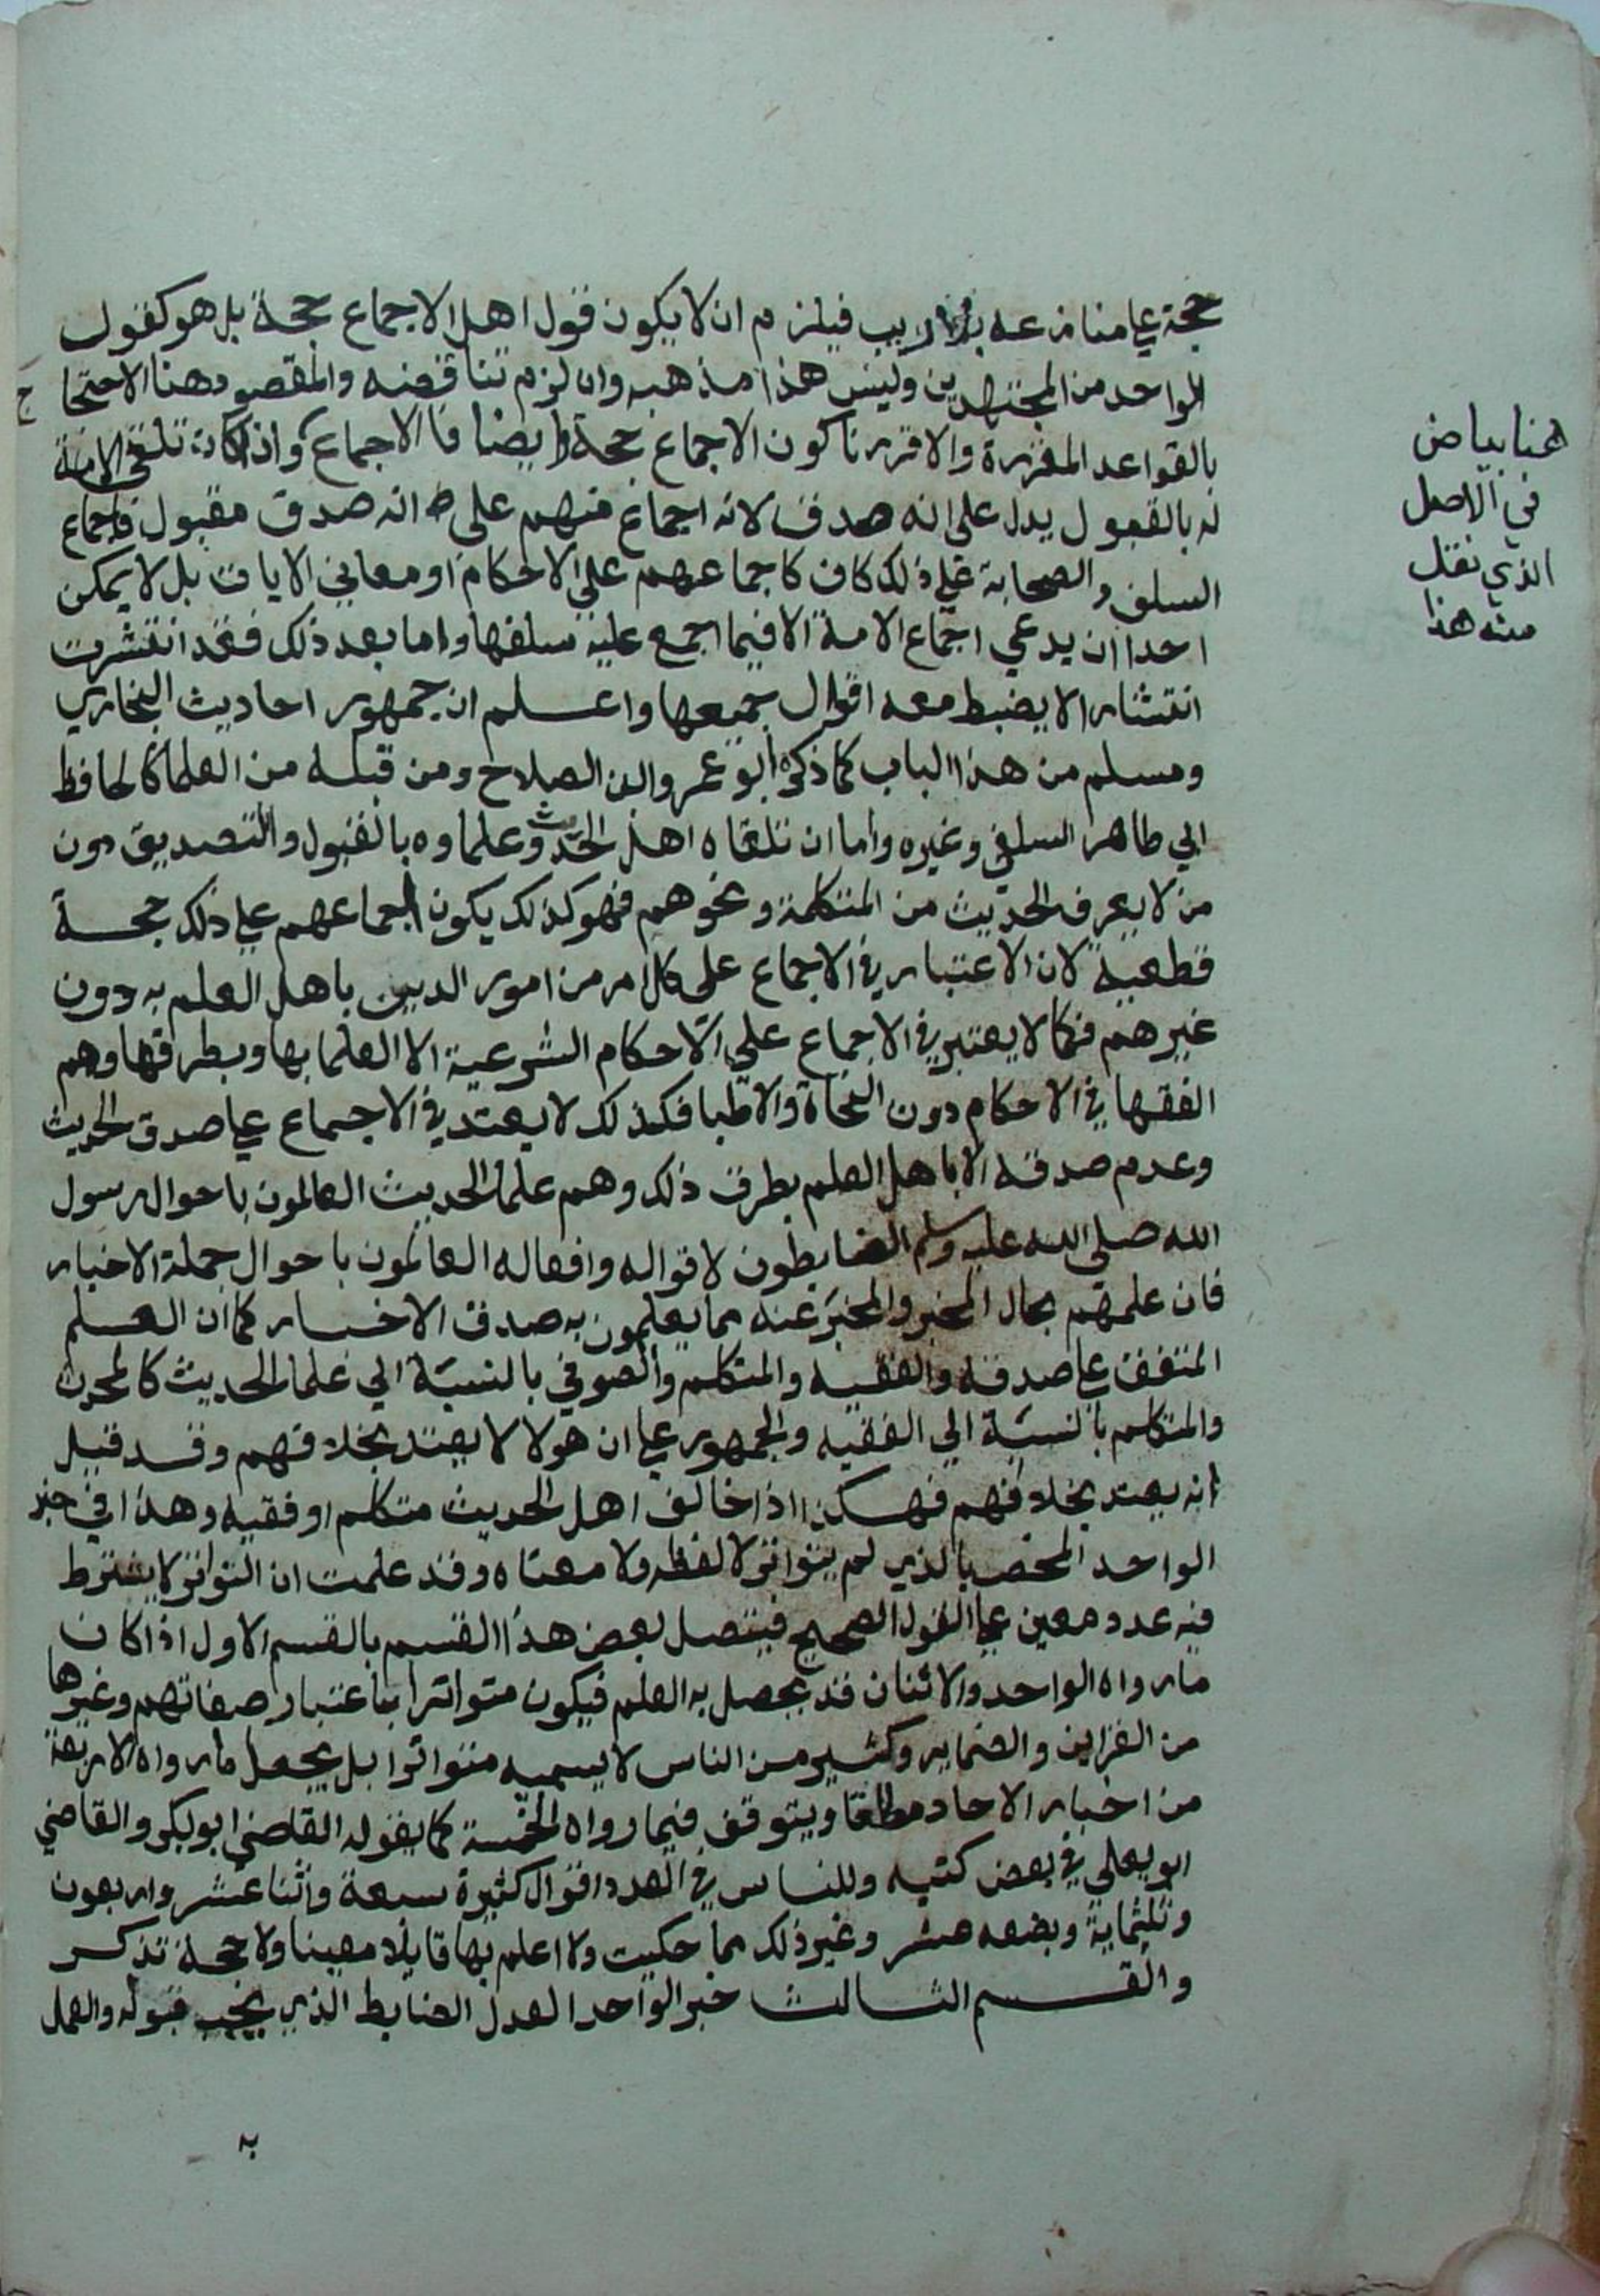 حجة علي منازعه بلا ريب فيلزم ان لا يكون قول اهل الاجماع بحجة بل هو كقول
الواحد من المجتهدين وليس هذا مذهبه وان لزم تناقضه والمقصود هنا الاحتجا
ج
بالقواعد المقررة والا قررنا كون الاجماع حجة ايضا فالاجماع واذا كان تلقي الامة
له بالقبول يدل على انه صدق لانه اجماع منهم على انه صدق مقبول فاجماع
السلف والصحابة علي ذلك كان كاجماعهم على الاحكام او معاني الايات بل لا يمكن
احدا ان يدعي اجماع الامة الا فيما اجمع عليه سلفها واما بعد ذلك فقد انتشرت
انتشارا لا يضبط معه اقوال جميعها واعلم ان جمهور احاديث البخاري
ومسلم من هذا الباب كما ذكره ابو عمرو ابن الصلاح ومن قبله من العلما كالحافظ
ابي طاهر السلفي وغيره واما ان تلقاه اهل الحديث وعلماوه بالقبول والتصديق دون
من لا يعرف الحديث من المتكلمة ونحوهم فهو كذلك يكون اجماعهم علي ذلك حجة
قطعية لان الاعتبار في الاجماع على كل امر من امور الدين باهل العلم به دون
غيرهم فكما لا يعتبر في الاجماع علي الاحكام الشرعية الا العلما بها وبطرقها وهم
الفقها في الاحكام دون النحاة والاطبا فكذلك لا يعتد في الاجماع علي صدق الحديث
وعدم صدقه الا باهل العلم بطرق ذلك وهم علما الحديث العالمون باحوال رسول
الله صلى الله عليه وسلم الضابطون لاقواله وافعاله العالمون باحوال جملة الاخبار
فان علمهم بحال المخبر والمخبَر عنه مما يعلمون به صدق الاخبار كما ان العلم
المتفق علي صدقه والفقيه والمتكلم والصوفي بالنسبة الي علما الحديث كالمحدث
والمتكلم بالنسبة الي الفقيه والجمهور علي ان هولا لا يعتد بخلافهم وقد قيل
انه يعتد بخلافهم فهكذا اذا خالف اهل الحديث متكلم او فقيه وهذا في خبر
الواحد المخص بالذي لم يتواتر لا لفظه ولا معناه وقد علمت ان التواتر لا يشترط
فيه عدد معين علي القول الصحيح فيتصل بعض هذا القسم بالقسم الاول اذا كان
ما رواه الواحد والاثنان قد يحصل به العلم فيكون متواترا باعتبار صفاتهم وغيرها
من القراين والضماير وكثير من الناس لا يسميه متواترا بل يجعل ما رواه الاربعة
من اخبار الاحاد مطلقا ويتوقف فيما رواه الخمسة كما يقوله القاضي ابو بكر والقاضي
ابو يعلي في بعض كتبه وللناس في العدد اقوال كثيرة سبعة واثنا عشر واربعون
وثلثماية وبضعه عشر وغير ذلك مما حكيت ولا اعلم بها قايلا معينا ولا حجة تذكر
والقسم الثالث خبر الواحد العدل الضابط الذي يجب قبوله والعمل
به
هنا بياض
في الاصل
الذي نقل
منه هذا